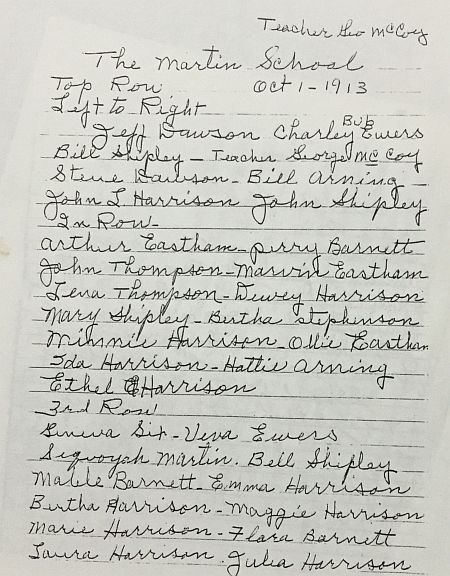 Teacher Geo McCoy
The Martin School
Top Row Oct 1-1913
Left to Right
Jeff Dawson Charley Bub Ewers
Bill Shipley - Teacher George McCoy
Steve Dawson - Bill Arning
John L Harrison John Shipley
2n Row-
Arthur Eastham - Perry Barnett
John Thompson - Marvin Eastham
Lena Thompson - Dewey Harrison
Mary Shipley - Bertha Stephenson
Minnie Harrison - Ollie Eastham
Ida Harrison - Hattie Arning
Ethel Harrison
3rd Row
Geneva Six - Veva Ewers
Sequoyah Martin. Bell Shipley
Mable Barnett - Emma Harrison
Bertha Harrison - Maggie Harrison
Marie Harrison - Flara Barnett
Laura Harrison. Julia Harrison